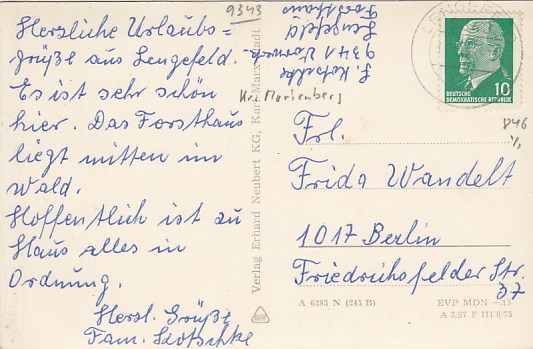 9343
Herzliche Urlaubs=
grüße aus Lengefeld.
Es ist sehr schön
hier. Das Forsthaus
liegt mitten im
Wald.
Hoffentlich ist zu
Haus alles in
Ordnung.
Herzl. Grüße
Fam.
9341
Lengefeld
Forsthaus
Kr. Marienberg
10
DEUTSCHE
DEMOKRATISCHE REPUBLIK
Frl.
Frida Wandelt
1017 Berlin
Friedrichsfelder Str.
37
Verlag Erhard Neubert KG, Karl-Marx-Stadt
A 6283 N (245 B)
EVP MDN –.15
A 3/67 F III 6/75